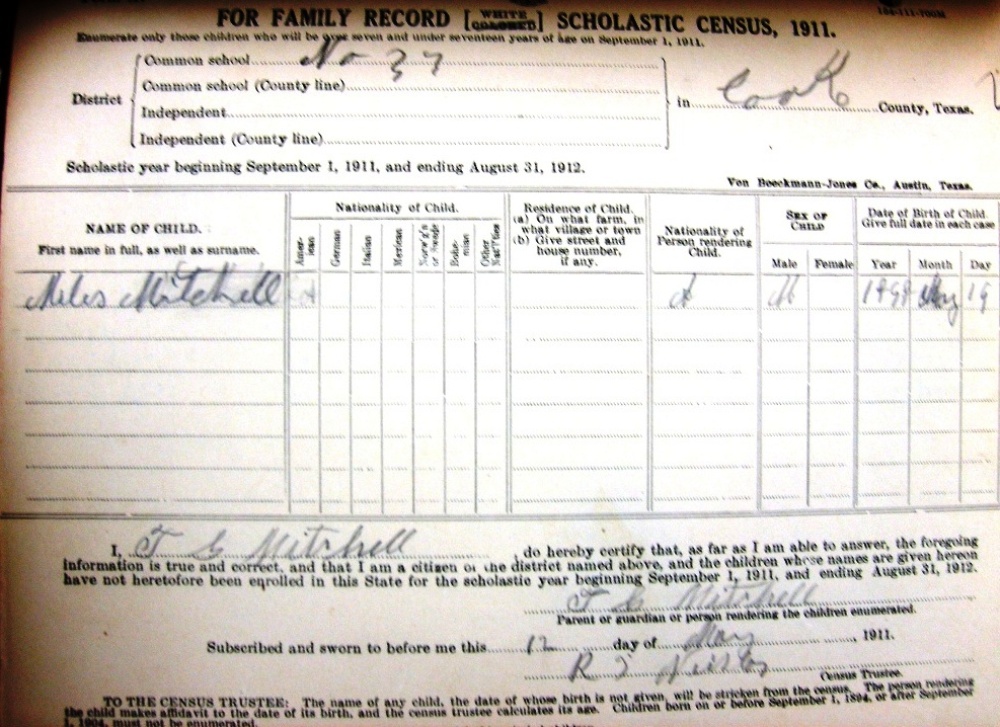 FOR FAMILY RECORD [WHITE COLORED] SCHOLASTIC CENSUS, 1911.
Enumerate only those children who will be over seven and under seventeen years of age on September 1, 1911.
District
Common school No 37
Common school (County line)
Independent
Independent (County line)
in Cook County, Texas.
Scholastic year beginning September 1, 1911, and ending August 31, 1912.
Von Boeckmann-Jones Co., Austin, Texas.
NAME OF CHILD.
First name in full, as well as surname.
Nationality of Child.
American
German
Italian
Mexican
Norw'g'n or Swede
Bohemian
Other Nat'l'ties
Residence of Child.
(a) On what farm, in
what village or town
(b) Give street and
house number,
if any.
Nationality of
Person rendering
Child.
SEX OF
CHILD
Male Female
Date of Birth of Child.
Give full date in each case
Year Month Day
Miles Mitchell A A M 1898 May 19
I, T C Mitchell, do hereby certify that, as far as I am able to answer, the foregoing
information is true and correct, and that I am a citizen of the district named above, and the children whose names are given hereon
have not heretofore been enrolled in this State for the scholastic year beginning September 1, 1911, and ending August 31, 1912.
T C Mitchell
Parent or guardian or person rendering the children enumerated.
Subscribed and sworn to before me this 12 day of May, 1911.
R
Census Trustee.
TO THE CENSUS TRUSTEE: The name of any child, the date of whose birth is not given, will be stricken from the census. The person rendering
the child makes affidavit to the date of its birth, and the census trustee calculates its age. Children born on or before September 1, 1894, or after September
1, 1904, must not be enumerated.